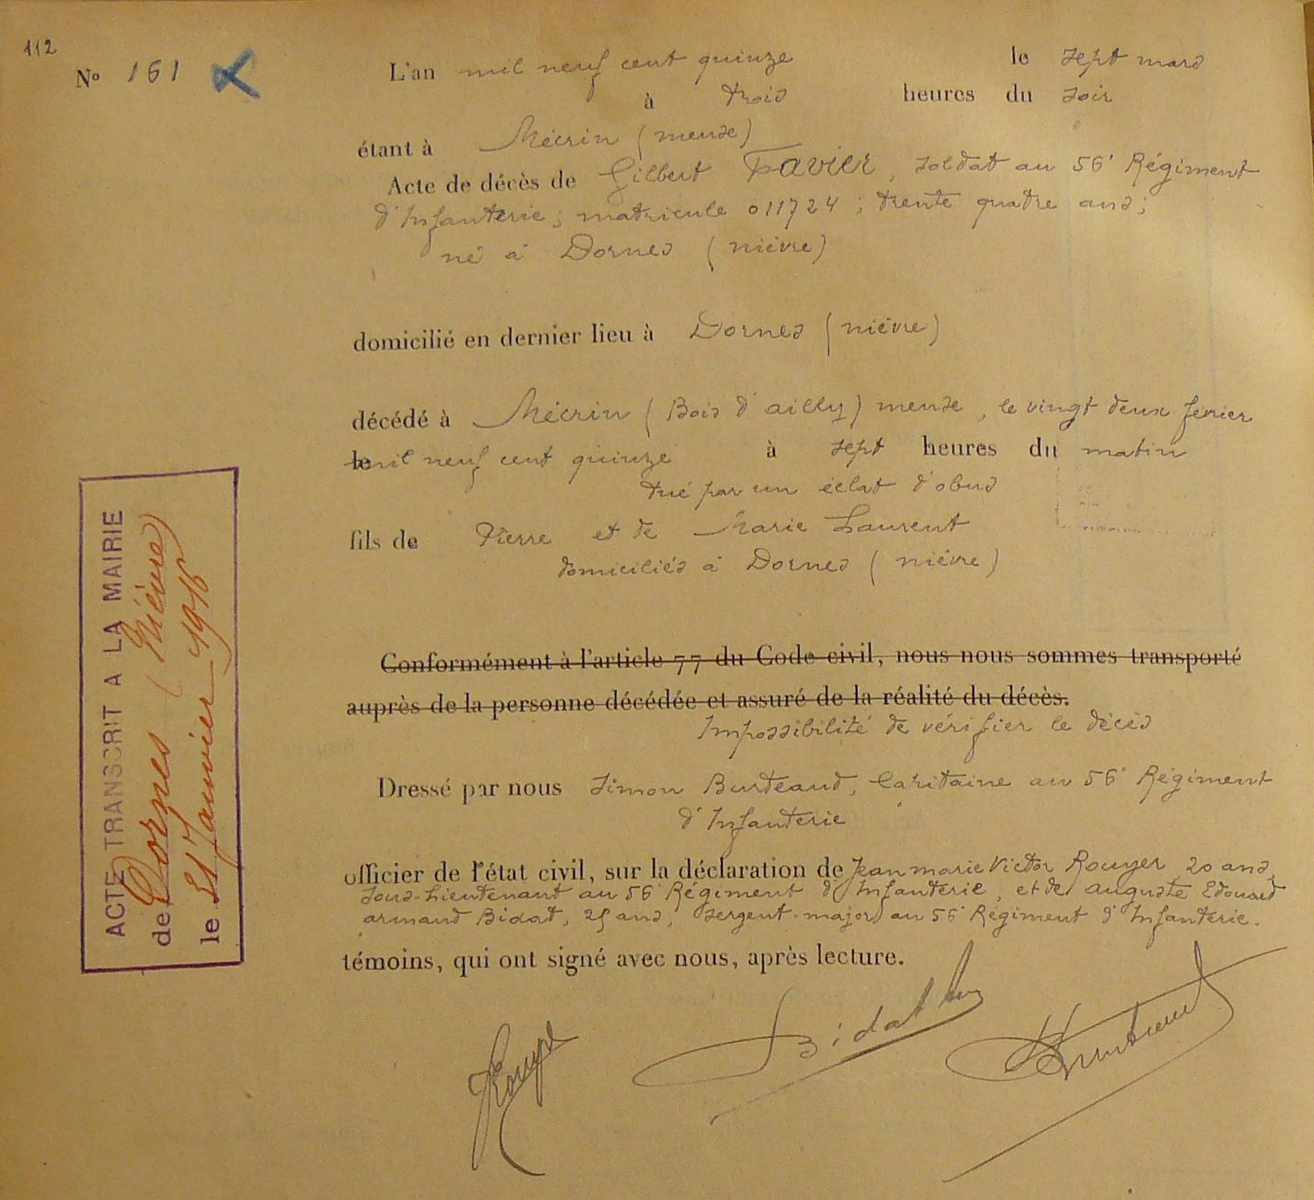 112
N° 161
L'an mil neuf cent quinze le sept mars
à trois heures du soir
étant à Mécrin (meuse)
Acte de décès de Gilbert Favier, soldat au 56e Régiment
d'Infanterie; matricule 011724; trente quatre ans;
né à Dornes (nièvre)
domicilié en dernier lieu à Dornes (nièvre)
décédé à Mécrin (Bois d'ailly) meuse, le vingt deux fevrier
le mil neuf cent quinze à sept heures du matin
tué par un éclat d'obus
fils de Pierre et de Marie Laurent
domiciliés à Dornes (nièvre)
Conformément à l'article 77 du Code civil, nous nous sommes transporté
auprès de la personne décédée et assuré de la réalité du décès.
Impossibilité de vérifier le décès
Dressé par nous Simon Burteaud, Capitaine au 56e Régiment
d'Infanterie
officier de l'état civil, sur la déclaration de Jean marie Victor Rouyer 20 ans,
sous-Lieutenant au 56e Régiment d'Infanterie, et de auguste Edouard
armand Bidat, 25 ans, sergent-major au 56e Régiment d'Infanterie.
témoins, qui ont signé avec nous, après lecture.
Rouyer Bidat
ACTE TRANSCRIT A LA MAIRIE
de Dornes (Nièvre)
le Janvier 1916